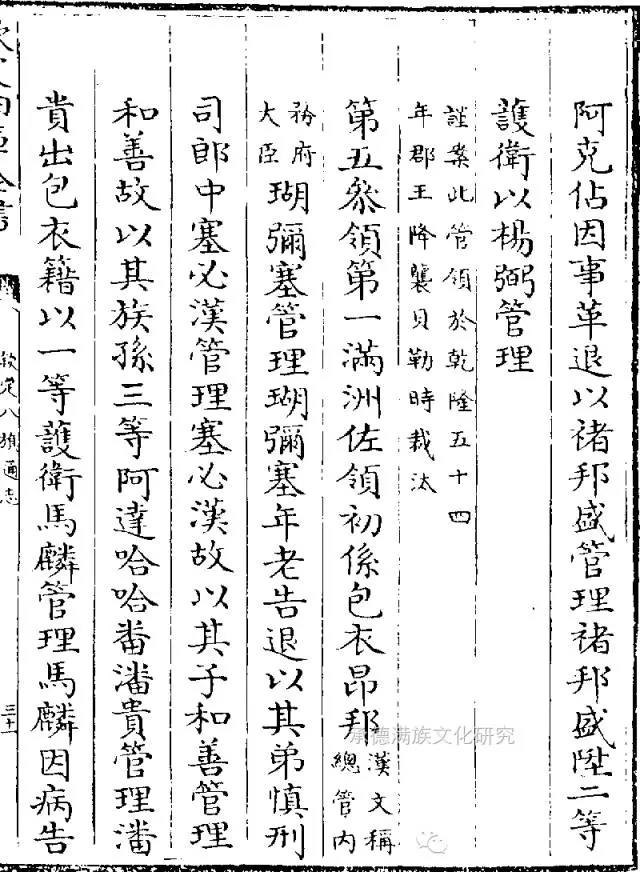 阿克佔因事革退以褚邦盛管理褚邦盛陞二等
護衛以楊弼管理
謹案此管領於乾隆五十四
年郡王降襲貝勒時裁汰
第五叅領第一滿洲佐領初係包衣昂邦漢文稱
總管内
務府
大臣瑚彌塞管理瑚彌塞年老告退以其弟慎刑
司郎中塞必漢管理塞必漢故以其子和善管理
和善故以其族孫三等阿達哈哈番潘貴管理潘
貴出包衣籍以一等護衛馬麟管理馬麟因病告
欽定八旗通志
三十
承德满族文化研究